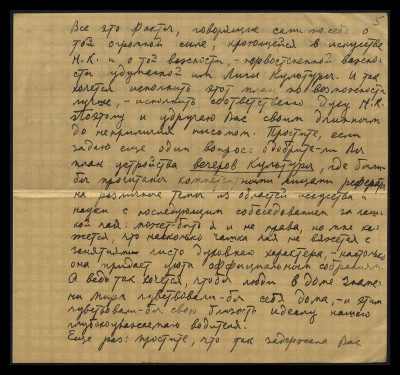 5
Все это факты, говорящие сами по себе о
той огромной силе, кроющейся в искусстве
Н.К. и о той важности, - первостепенной важно-
сти удуманной им Лиги Культуры. И так
хочется исполнить этот план по возможности
лучше, - исполнить соответственно Духу Н.К.
Поэтому и утруждаю Вас своим длинным
до неприличия письмом. Простите, если
задаю еще один вопрос: одобрите-ли Вы
план устройства вечеров Культуры, где были
бы прочитаны компетентными лицами рефераты
на различные темы из областей искусства и
науки с последующим собеседованием за чаш-
кой чая: может-быть я и не права, но мне ка-
жется, что насколько чашка чая не вяжется с
занятиями чисто духовного характера, - настолько
она придает уюта оффициальным собраниям.
А ведь так хочется, чтобы люди в доме Знаме-
ни Мира чувствовали-бы себя дома, - и этим
чувствовали-бы свою близость идеалу нашего
глубокоуважаемого водителя.
Еще раз: простите, что так задержала Вас